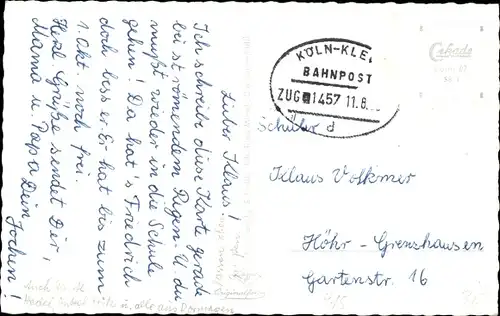 Lieber Klaus!
Ich schreibe diese Karte gerade
bei strömendem Regen. U. du
mußt wieder in die Schule
gehen! Da hat's Friedrich
doch besser. Er hat bis zum
1. Okt. noch frei.
Herzl. Grüße sendet Dir,
Mama u. Papa Dein
Jochen!
KÖLN-KLE
BAHNPOST
ZUG 1457 11.8.
Schüler
Klaus Volkmer
Höhr-Grenzhausen
Gartenstr. 16
Cekade